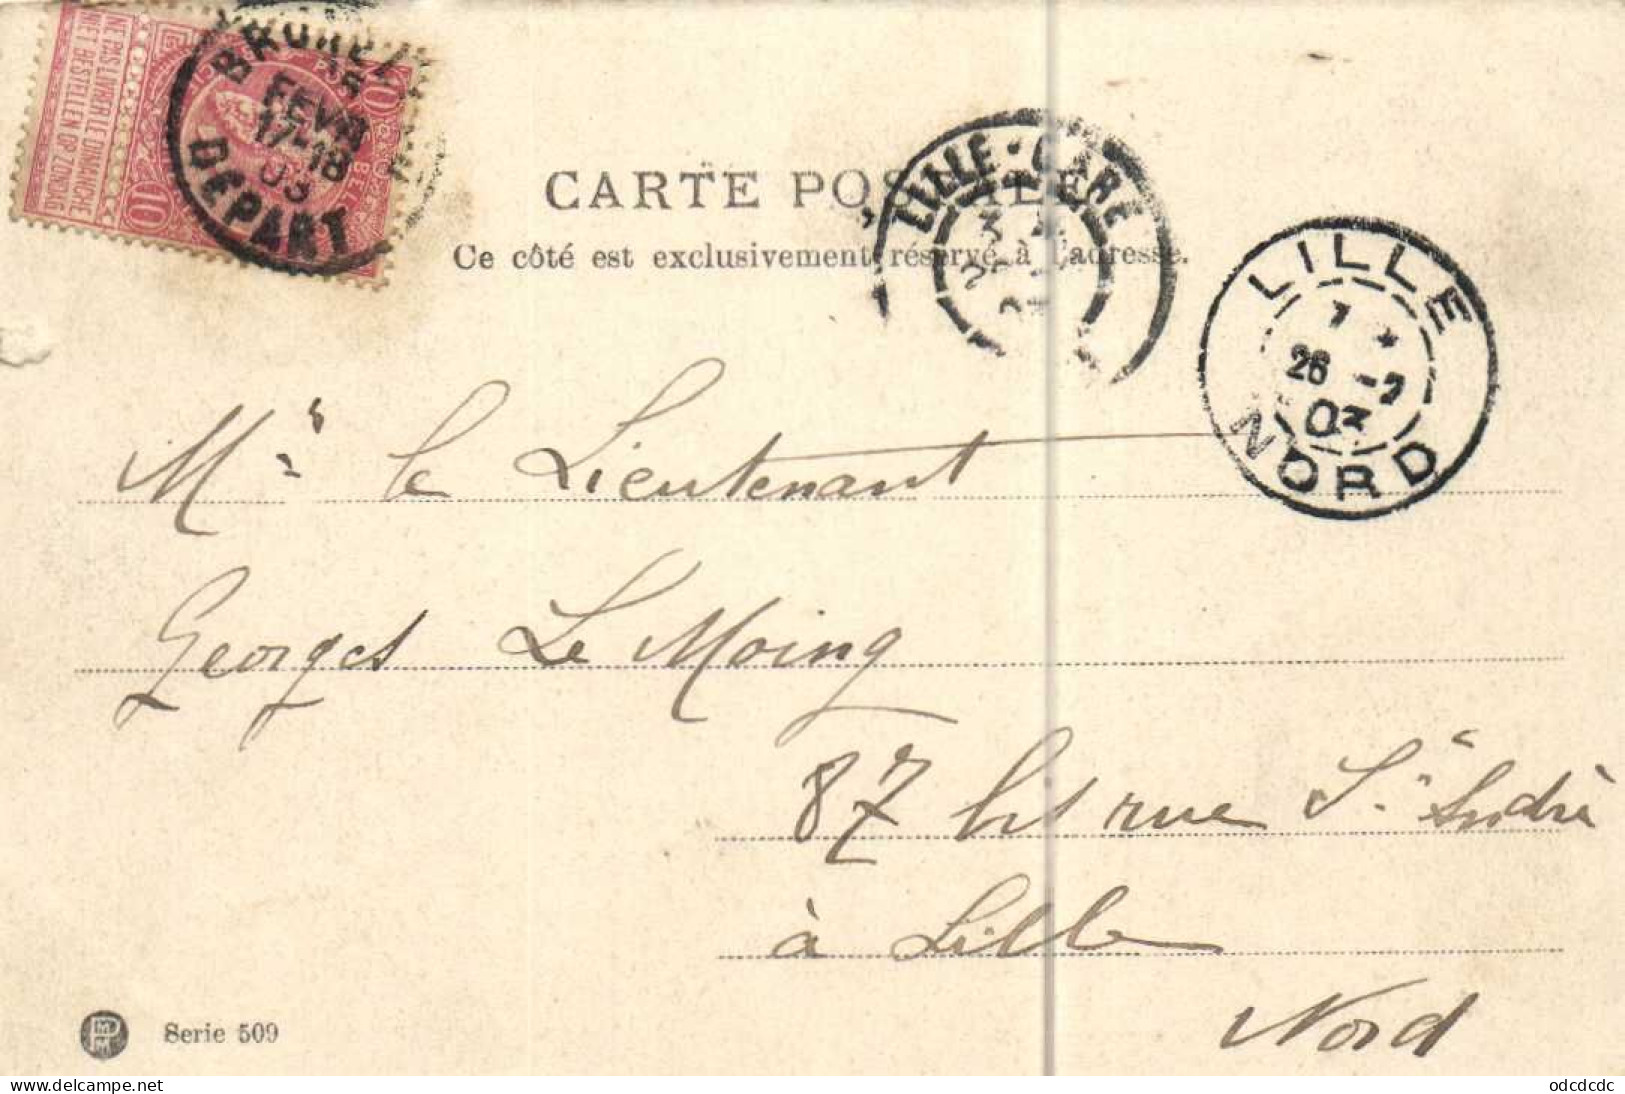 NE PAS LIVRER LE DIMANCHE
NIET BESTELLEN OP ZONDAG
10
10
FEVR
17-18
03
DEPART
CARTE
Ce côté est exclusivement réservé à l'adresse.
LILLE-GARE
LILLE
7
26 -2
03
NORD
Mr le Lieutenant
Georges Le Moing
87 bis rue St André
à Lille
Nord
Serie 509
delcampe.net
odcdcdc